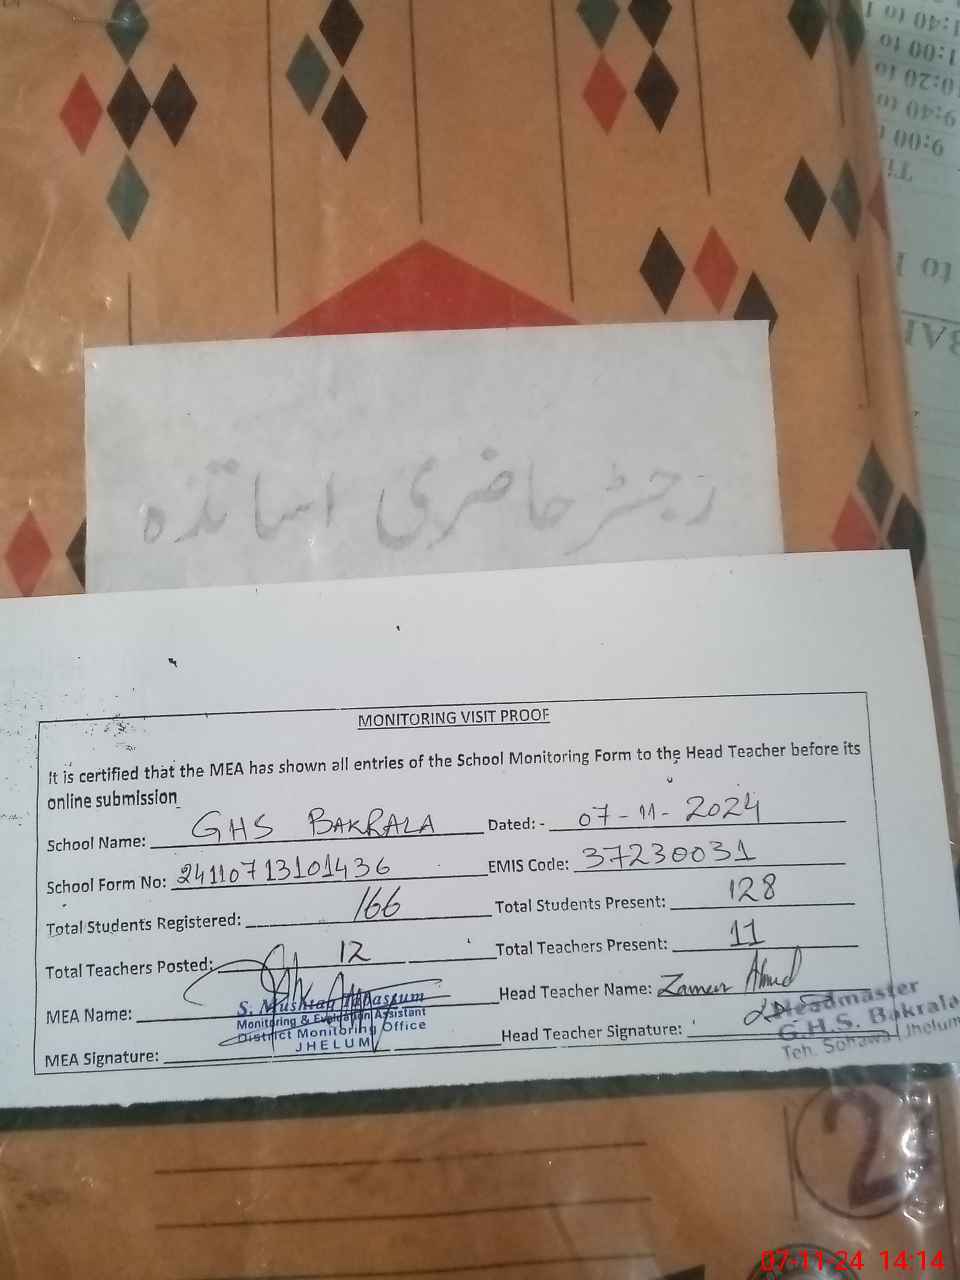 1:40 to 1
1:00 to
10:20 to
9:40 to
9:00 t
رجسٹر حاضری اساتذہ
MONITORING VISIT PROOF
It is certified that the MEA has shown all entries of the School Monitoring Form to the Head Teacher before its
online submission
School Name: GHS BAKRALA Dated: - 07-11-2024
School Form No: 2411071310143 6 EMIS Code: 37230031
Total Students Registered: 166 Total Students Present: 128
Total Teachers Posted: 12 Total Teachers Present: 11
MEA Name: S. Mushtaq Tabassum Head Teacher Name: Zameer Ahmd
Monitoring & Evaluation Assistant
District Monitoring Office
JHELUM
MEA Signature: Head Teacher Signature:
Headmaster
G.H.S. Bakrala
Teh. Sohawa, Jhelum
2
07-11-24 14:14